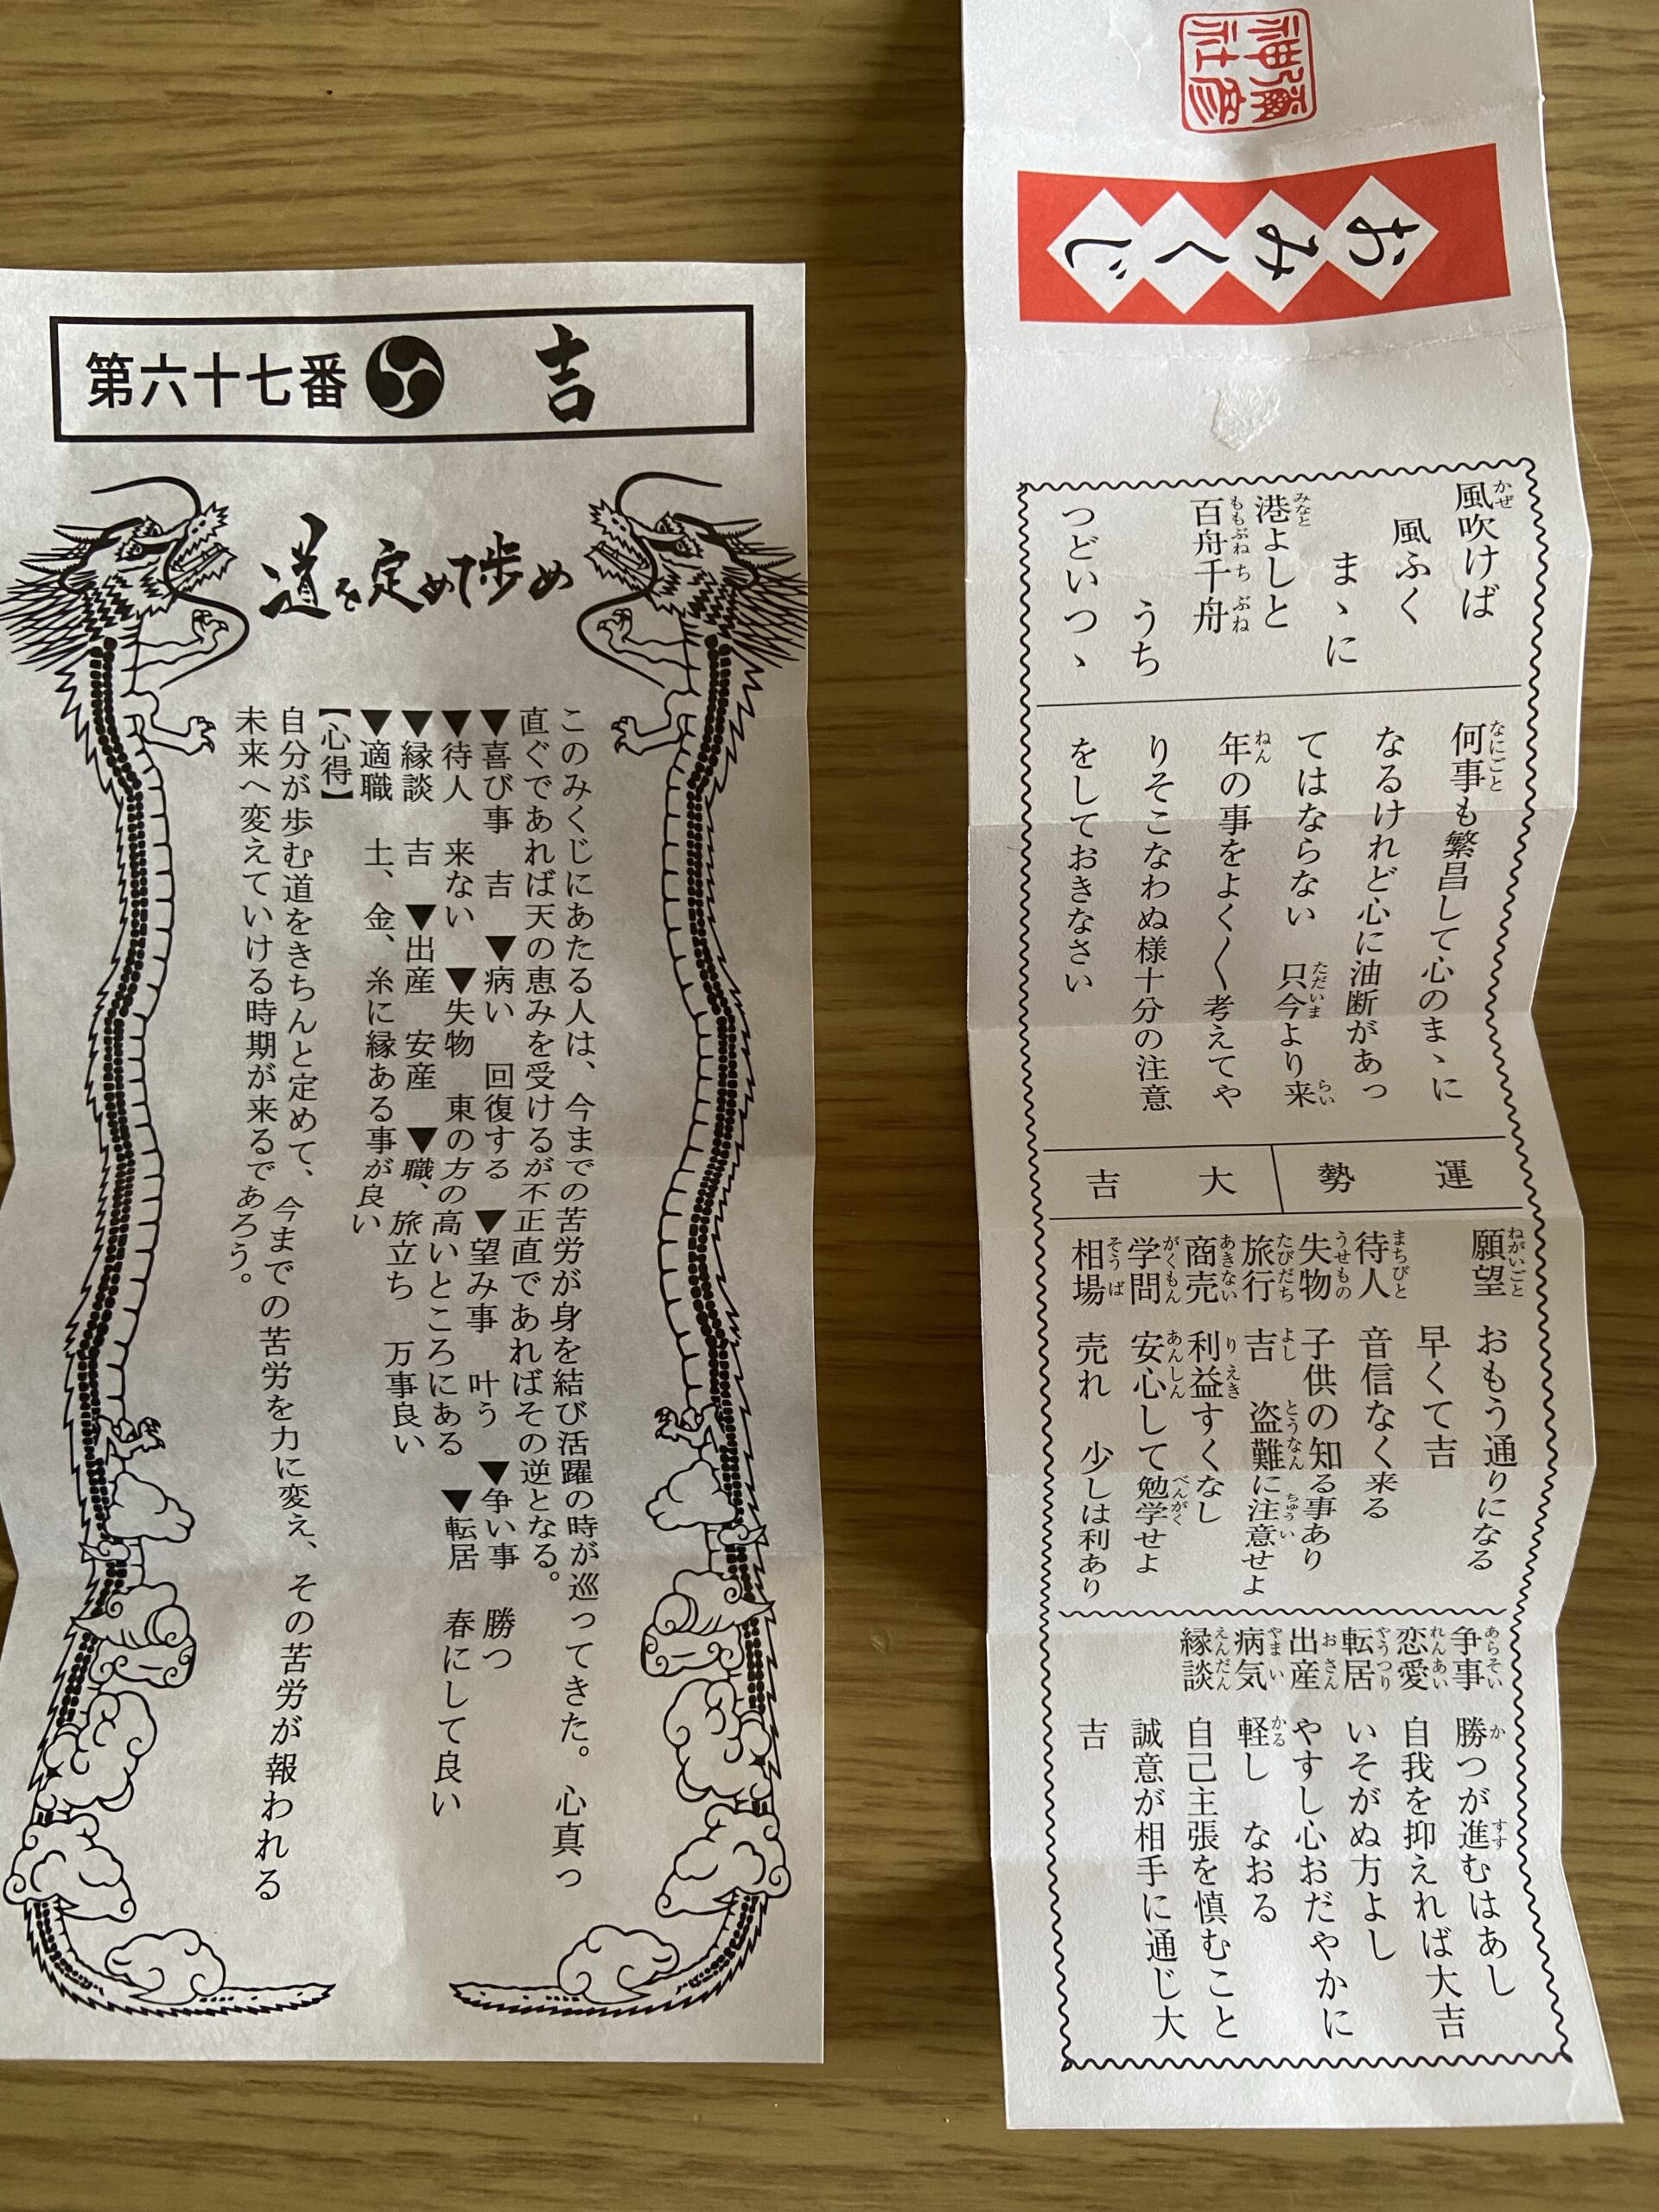 彌彦
神社
おみくじ
風吹けば
風ふく
まゝに
港よしと
百舟千舟
うち
つどいつゝ
何事も繁昌して心のまゝに
なるけれど心に油断があっ
てはならない 只今より来
年の事をよく〳〵考えてや
りそこなわぬ様十分の注意
をしておきなさい
運勢 大吉
願望 おもう通りになる
早くて吉
待人 音信なく来る
失物 子供の知る事あり
旅行 吉 盗難に注意せよ
商売 利益すくなし
学問 安心して勉学せよ
相場 売れ 少しは利あり
争事 勝つが進むはあし
恋愛 自我を抑えれば大吉
転居 いそがぬ方よし
出産 やすし心おだやかに
病気 軽し なおる
縁談 自己主張を慎むこと
誠意が相手に通じ大
吉
第六十七番 吉
道を定めて歩め
このみくじにあたる人は、今までの苦労が身を結び活躍の時が巡ってきた。心真っ
直ぐであれば天の恵みを受けるが不正直であればその逆となる。
▼喜び事 吉 ▼病い 回復する ▼望み事 叶う ▼争い事 勝つ
▼待人 来ない ▼失物 東の方の高いところにある ▼転居 春にして良い
▼縁談 吉 ▼出産 安産 ▼職、旅立ち 万事良い
▼適職 土、金、糸に縁ある事が良い
【心得】
自分が歩む道をきちんと定めて、今までの苦労を力に変え、その苦労が報われる
未来へ変えていける時期が来るであろう。